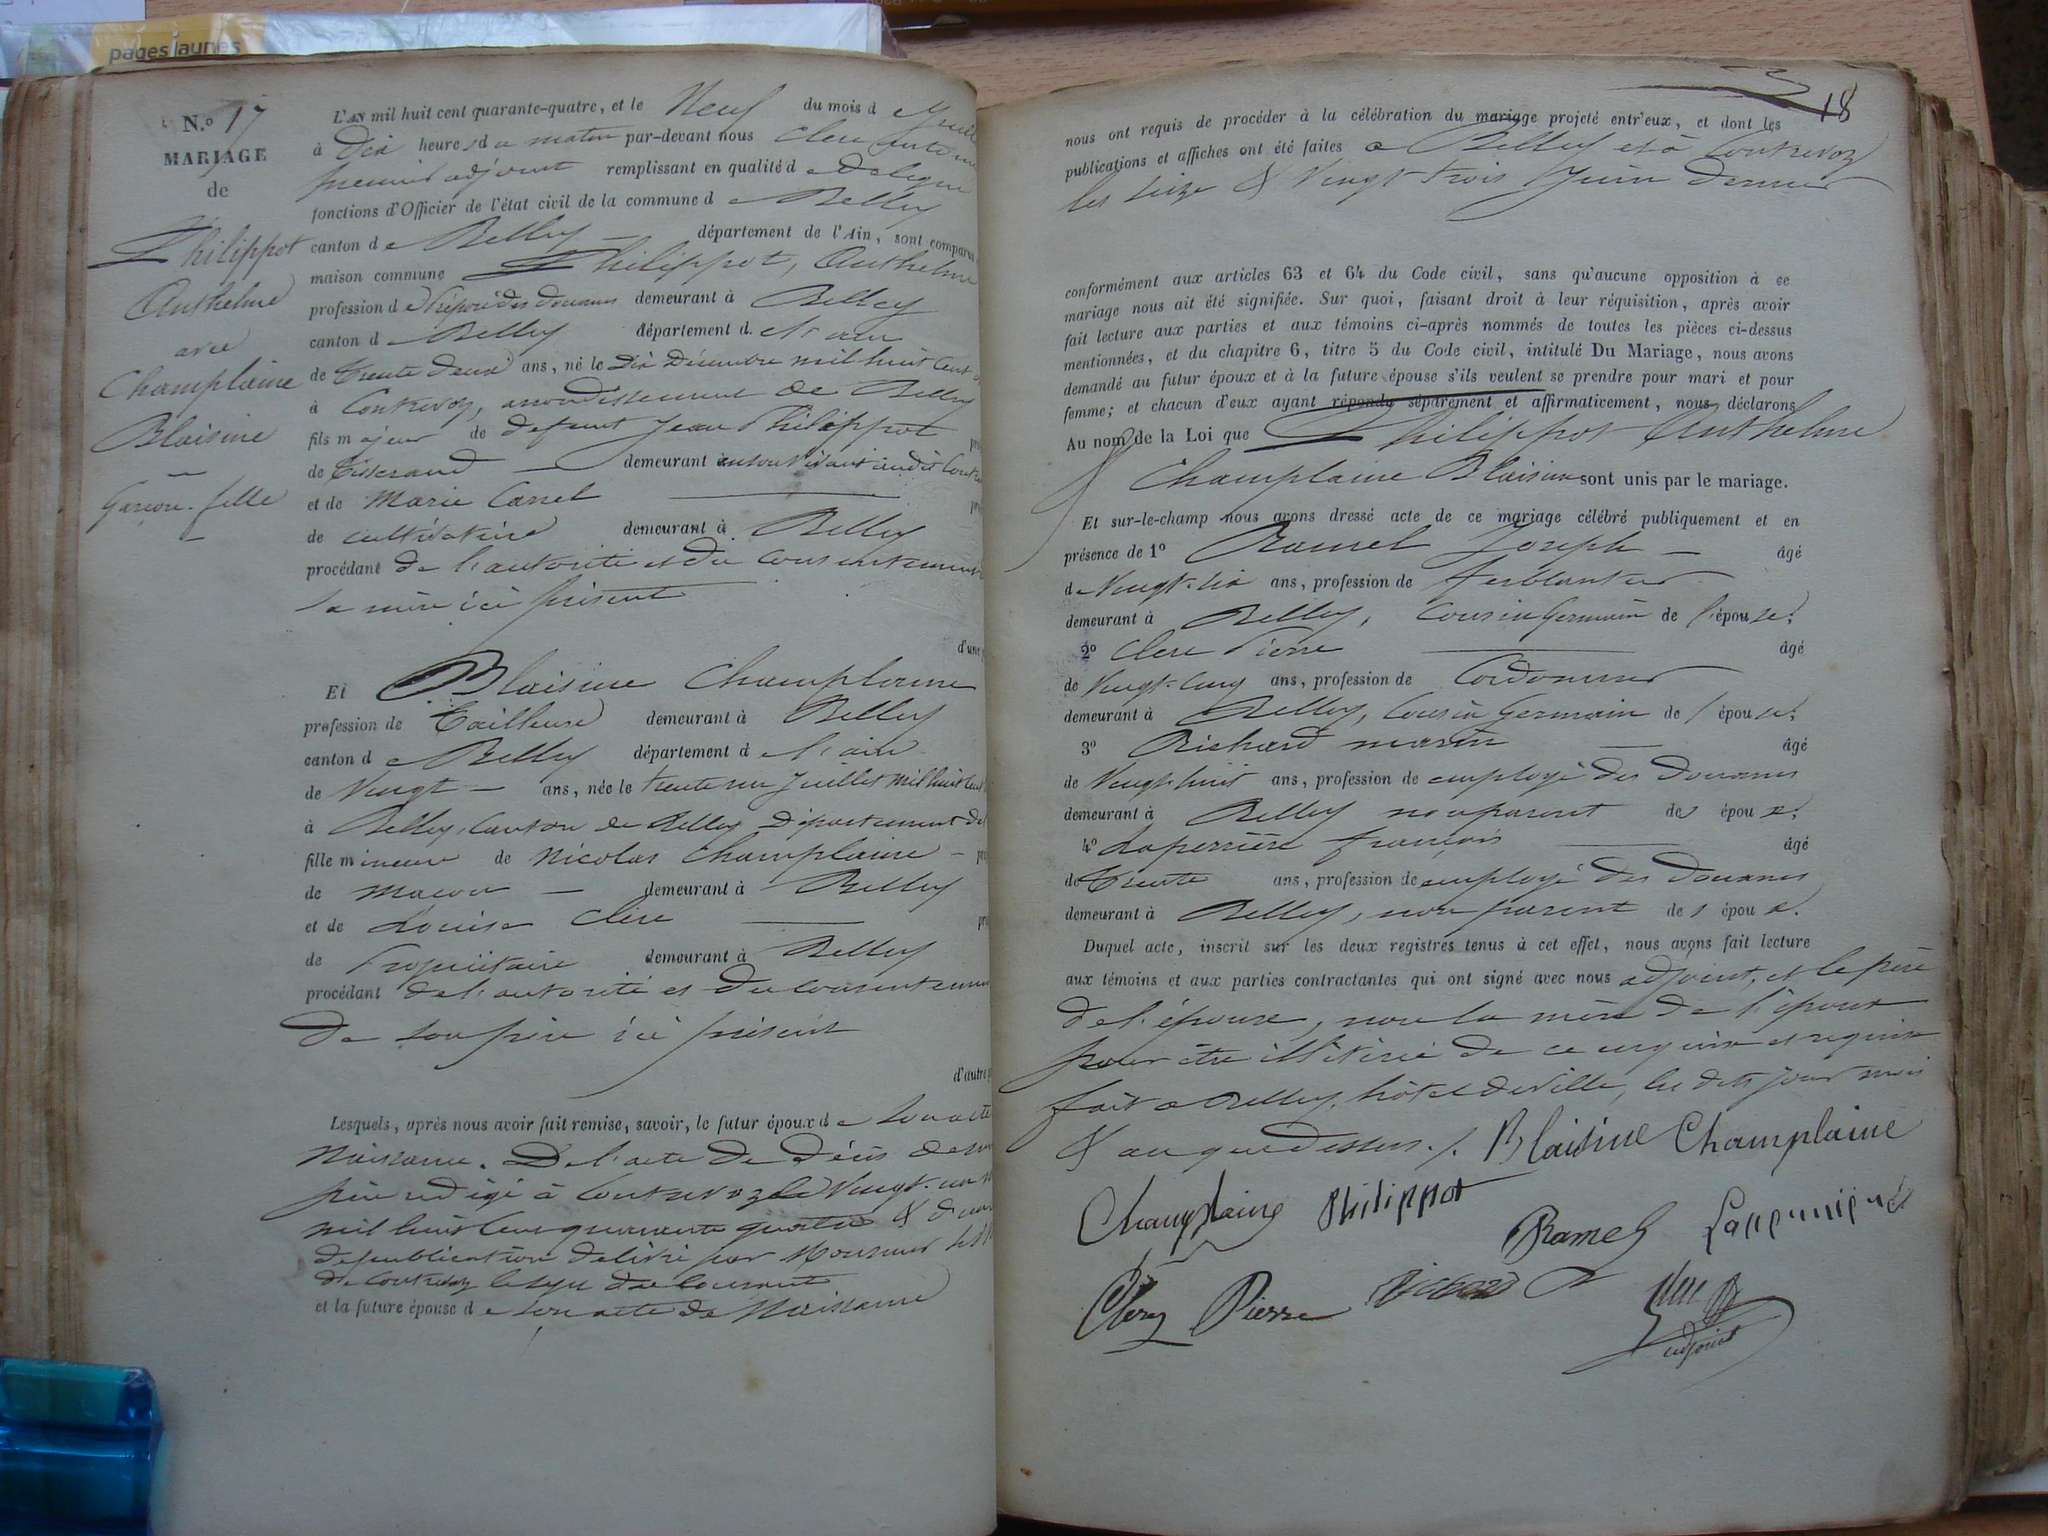 pages jaunes
N.o 17
MARIAGE
de
Philippot
Anthelme
avec
Champlaine
Blaisine
Garçon. fille
L'AN mil huit cent quarante-quatre, et le Neuf du mois d
à Dix heures du matin par-devant nous Clerc Antoine
premier adjoint remplissant en qualité de délégué
fonctions d'Officier de l'état civil de la commune de Belley
canton de Belley département de l'Ain, sont comparus
maison commune Philippot, Anthelme
profession de Préposé des douanes demeurant à Belley
canton de Belley département de l'ain
de trente deux ans, né le Dix Décembre mil huit cent
à Contrevoz, arrondissement de Belley
fils majeur de defunt Jean Philippot
de Tisserand demeurant
et de Marie Carrel
de cultivatrice demeurant à Belley
procédant de l'autorité et du consentement
sa mère ici présente
d'une
Et Blaisine Champlaine
profession de Tailleuse demeurant à Belley
canton de Belley département de l'ain
de Vingt ans, née le trente un Juillet mil huit cent
à Belley, Canton de Belley Département de
fille mineure de Nicolas Champlaine
de macon demeurant à Belley
et de Louise Clerc
de Propriétaire demeurant à Belley
procédant de l'autorité et du consentement
de son père ici présent
d'autre
Lesquels, après nous avoir fait remise, savoir, le futur époux de son acte
Naissance. De l'acte de Décès de son
père redigé à Contrevoz le Vingt-un
mil huit cent quarante quatre & d'un
de publication délivré par Monsieur
de Contrevoz le sept du courant
et la future épouse de son acte de Naissance
18
nous ont requis de procéder à la célébration du mariage projeté entr'eux, et dont les
publications et affiches ont été faites à Belley et à Contrevoz
les seize & Vingt trois Juin dernier
conformément aux articles 63 et 64 du Code civil, sans qu'aucune opposition à ce
mariage nous ait été signifiée. Sur quoi, faisant droit à leur réquisition, après avoir
fait lecture aux parties et aux témoins ci-après nommés de toutes les pièces ci-dessus
mentionnées, et du chapitre 6, titre 5 du Code civil, intitulé Du Mariage, nous avons
demandé au futur époux et à la future épouse s'ils veulent se prendre pour mari et pour
femme; et chacun d'eux ayant répondu séparément et affirmativement, nous déclarons
Au nom de la Loi que Philippot Anthelme
Champlaine Blaisine sont unis par le mariage.
Et sur-le-champ nous avons dressé acte de ce mariage célébré publiquement et en
présence de 1o Ramel Joseph âgé
de Vingt-six ans, profession de ferblantier
demeurant à Belley, cousin Germain de l'épouse;
2o Clerc Pierre âgé
de Vingt-cinq ans, profession de Cordonnier
demeurant à Belley, Cousin Germain de l'épouse;
3o Richard Martin âgé
de Vingt-huit ans, profession de employé des Douanes
demeurant à Belley non parent des époux;
4o Laperrière françois âgé
de Trente ans, profession de employé des Douanes
demeurant à Belley, non parent des époux.
Duquel acte, inscrit sur les deux registres tenus à cet effet, nous avons fait lecture
aux témoins et aux parties contractantes qui ont signé avec nous adjoint, et le père
de l'épouse, non la mère de l'époux
pour être illitérée de ce enquise et requise
fait à Belley, hôtel de Ville, les dits jour mois
& an que dessus. Blaisine Champlaine
Champlaine Philippot
Ramel
Clerc Pierre Richard
adjoint